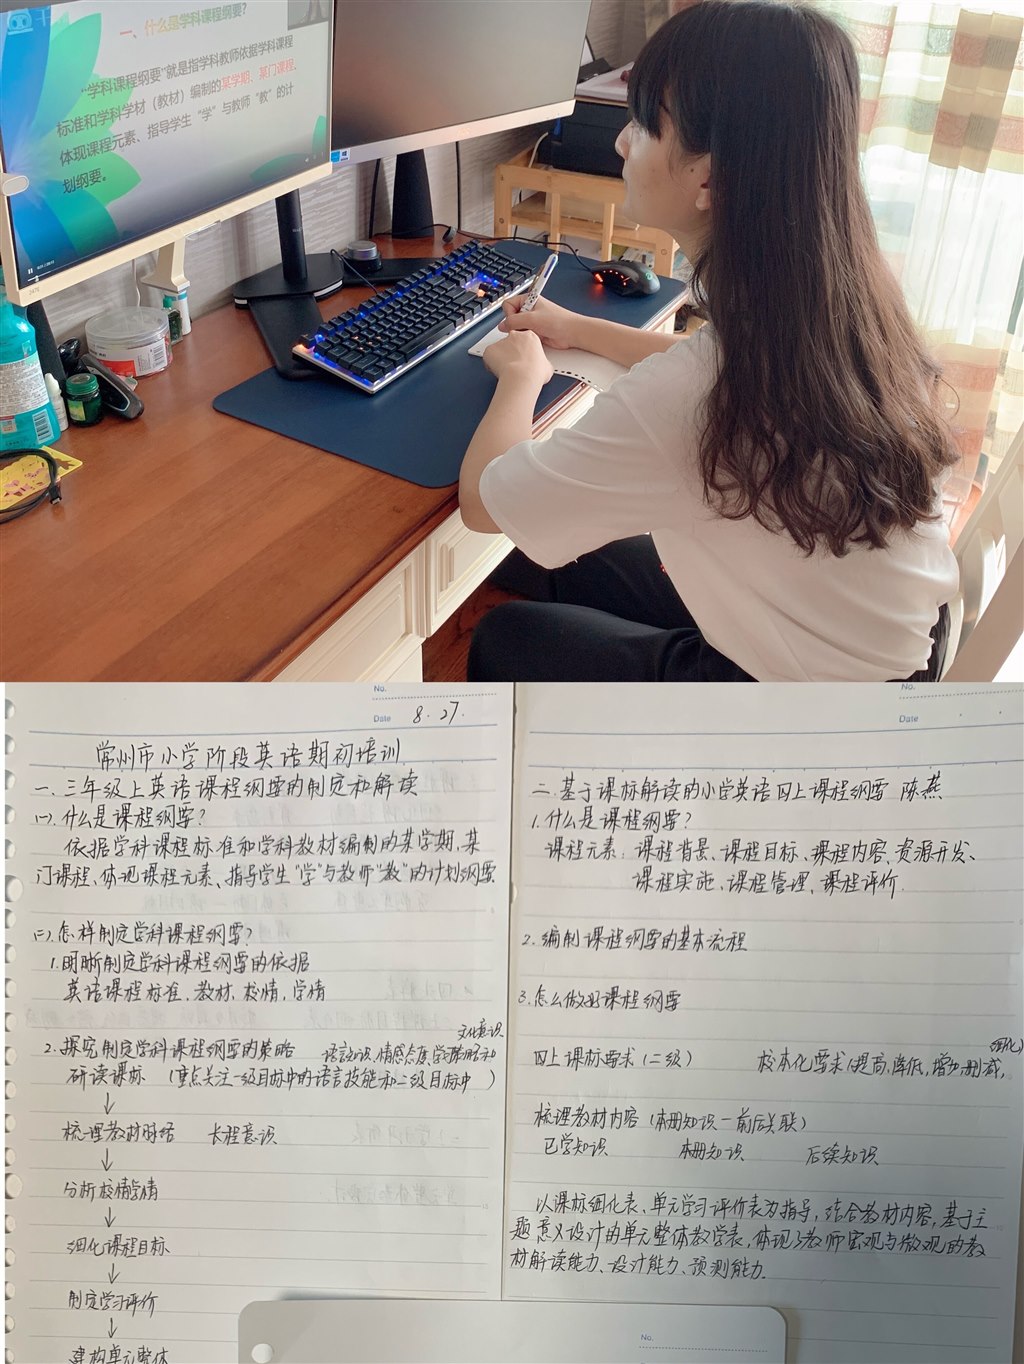 一、什么是学科课程纲要?
“学科课程纲要”就是指学科教师依据学科课程
标准和学科学材（教材）编制的某学期、某门课程、
体现课程元素、指导学生“学”与教师“教”的计
划纲要。
No.
Date 8.27.
常州市小学阶段英语期初培训
一、三年级上英语课程纲要的制定和解读
(一).什么是课程纲要?
依据学科课程标准和学科教材编制的某学期、某
门课程、体现课程元素、指导学生“学”与教师“教”的计划纲要
(二).怎样制定学科课程纲要?
1.明晰制定学科课程纲要的依据
英语课程标准、教材、校情、学情
文化意识
2.探究制定学科课程纲要的策略 语言知识、情感态度、学习策略和
研读课标 (重点关注一级目标中的语言技能和二级目标中 )
↓
梳理教材脉络 长程意识
↓
分析校情学情
↓
细化课程目标
↓
制定学习评价
↓
建构单元整体
No.
Date
二.基于课标解读的小学英语四上课程纲要 陈燕
1.什么是课程纲要?
课程元素: 课程背景、课程目标、课程内容、资源开发、
课程实施、课程管理、课程评价.
2.编制课程纲要的基本流程
3.怎么做好课程纲要
细化)
四上课标要求(二级) 校本化要求(提高,降低,增加,删减,
梳理教材内容 (本册知识-前后关联)
已学知识 本册知识 后续知识
以课标细化表、单元学习评价表为指导,结合教材内容,基于主
题意义设计的单元整体教学表,体现了教师宏观与微观的教
材解读能力、设计能力、预测能力.
No.